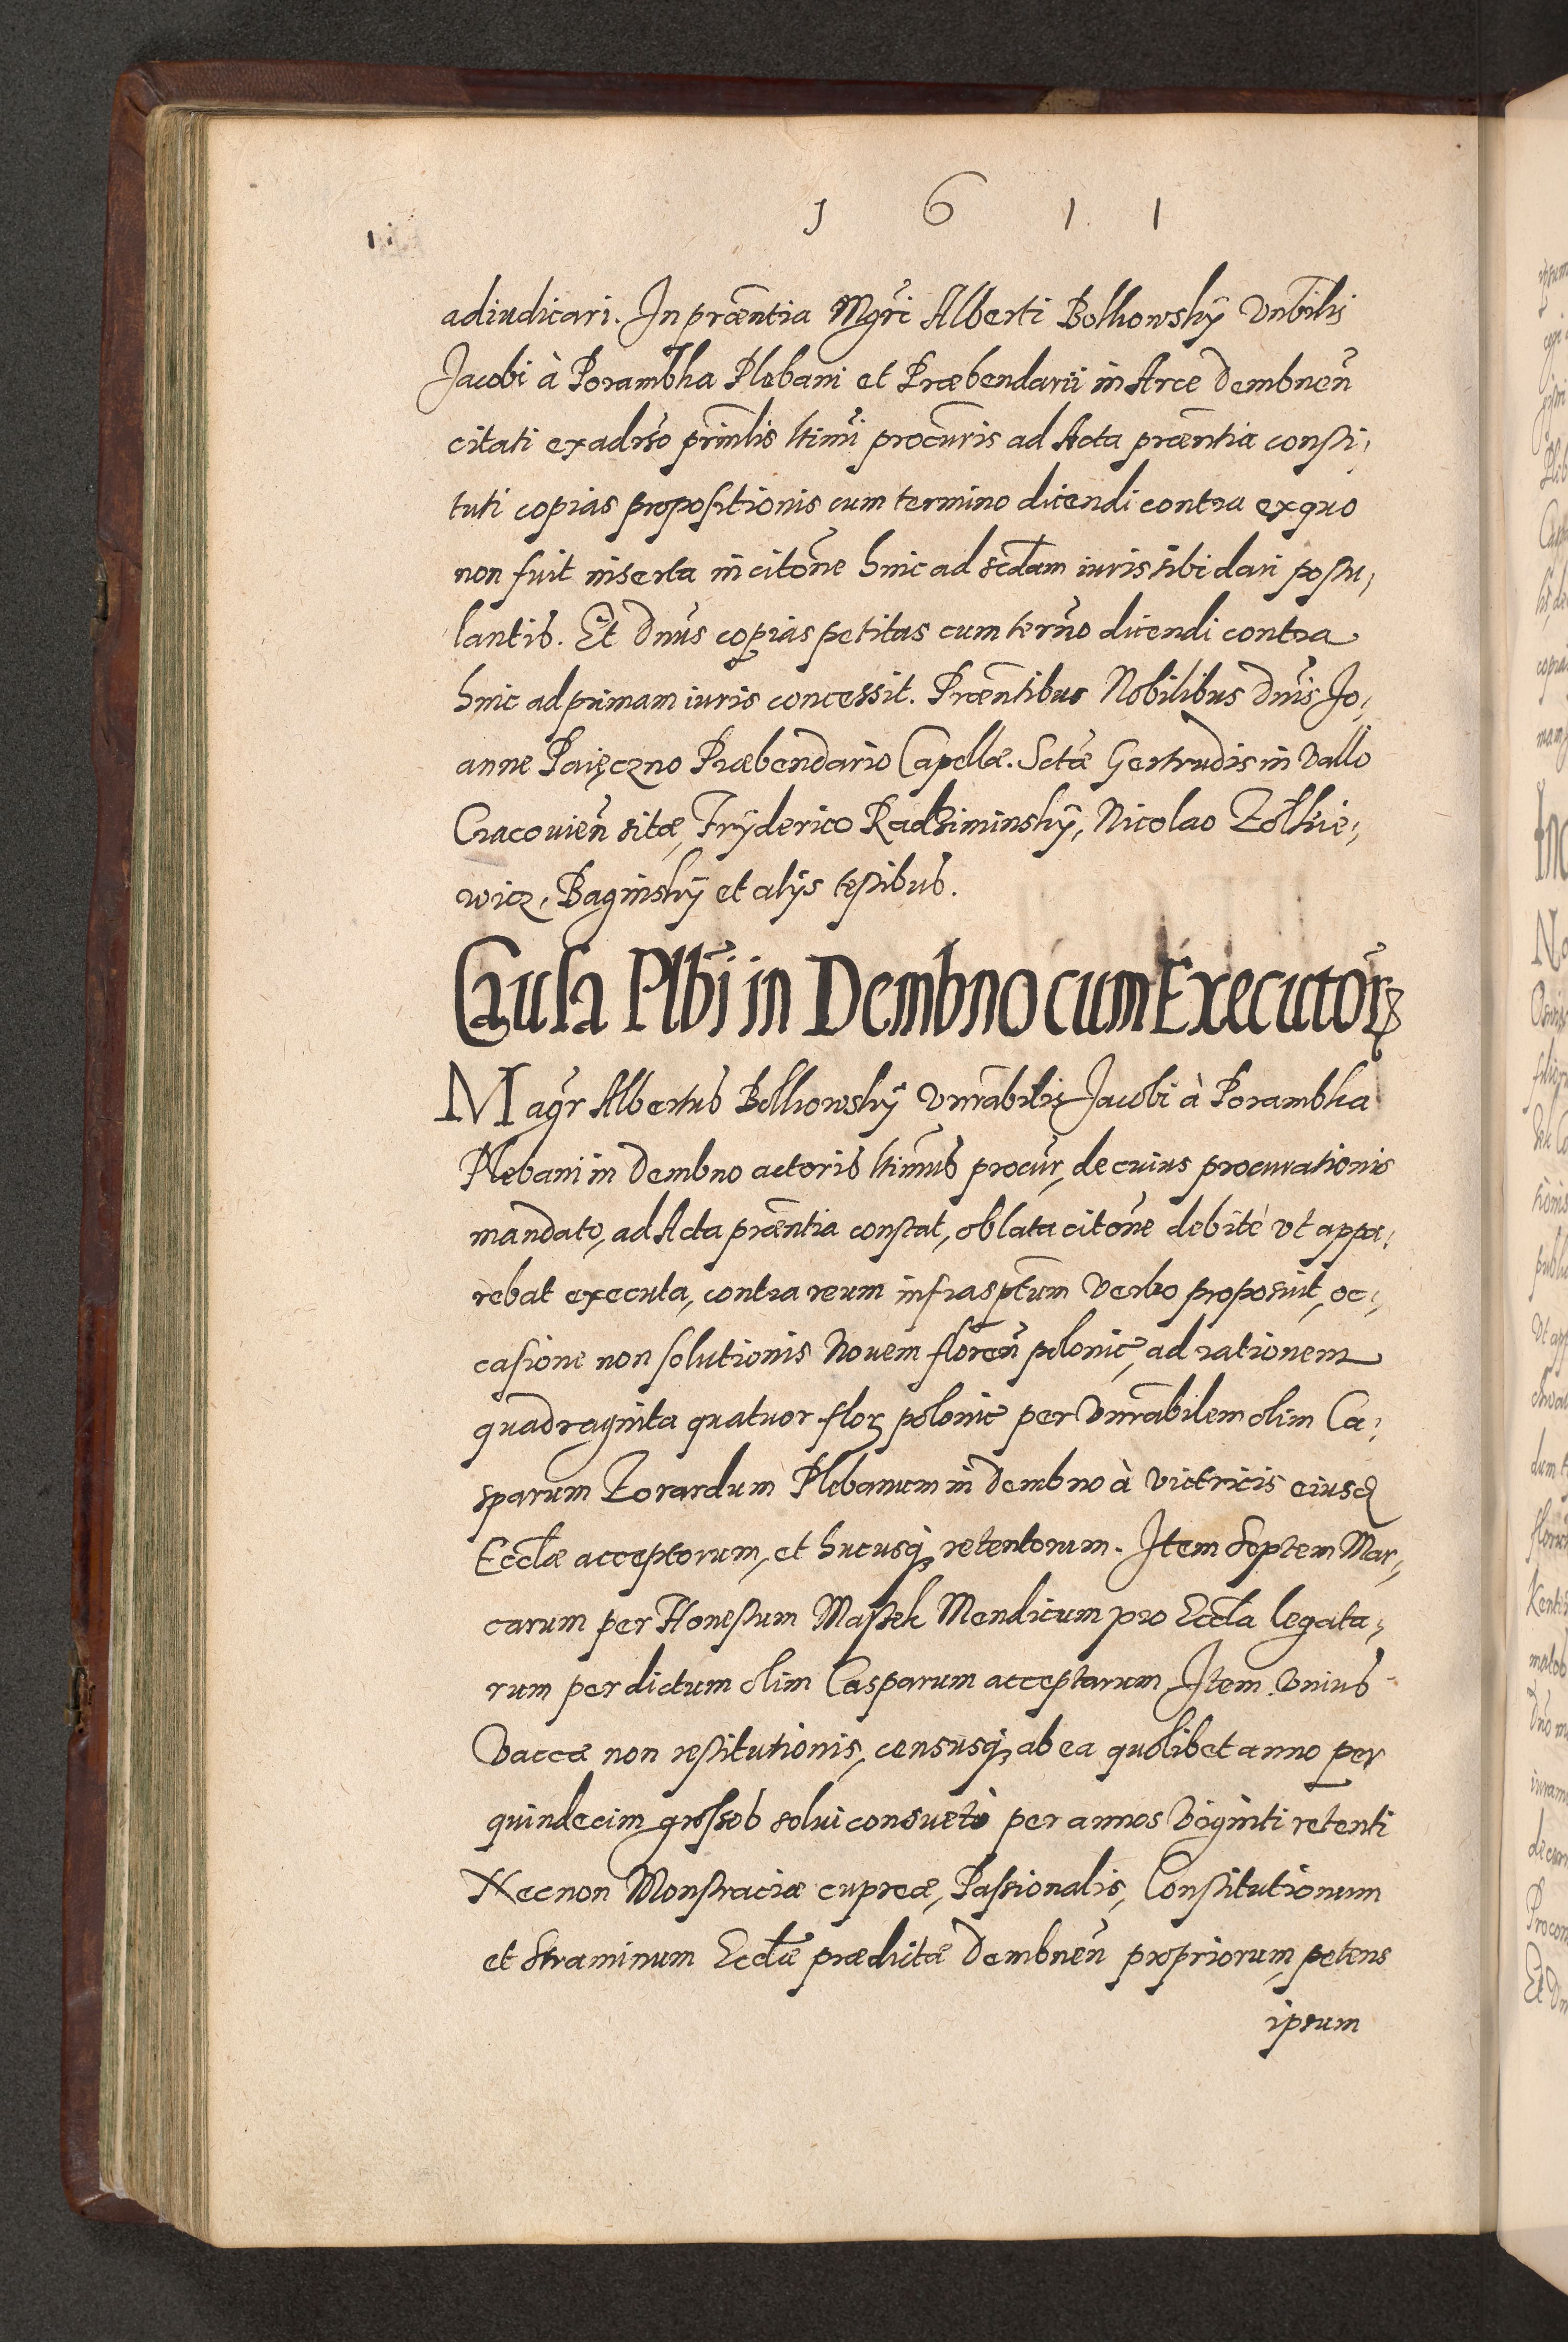 1 6 1 1
adiudicari. In pręntia Mgri Alberti Bolkowskÿ Vnbilis
Jacobi à Porambka Plebani et Præbendarii in Arce Dembnen̄
citati ex adūso prinlis ltimi procuris ad Acta præntia consti,
tuti copias propositionis cum termino dicendi contra ex quo
non fuit inserta in citōne hinc ad scdam iuris sibi dari postu,
lantis. Et Dnus copias petitas cum termo dicendi contra
hinc ad primam iuris concessit. Præntibus Nobilibus Dnis Jo,
anne Paięczno Præbendario Capellæ. Sctæ Gertrudis in Vallo
Cracouien̄ sitæ, Frÿderico Radziminskÿ, Nicolao Zołkie,
wicz, Baginskÿ et alÿs testibus.
Causa Plbi in Dembno cum Executorꝫ
Magr Albertus Bolkowskÿ Vnrabilis Jacobi à Porambka
Plebani in Dembno actoris ltimus procur, de cuius procurationis
mandato, ad Acta præntia constat, oblata citōne debitè vt appa,
rebat executa, contra reum infrasptum Verbo proposuit, oc,
casione non solutionis Nouem floren̄ polonic, ad rationem
quadraginta quatuor flor polonic per Vnrabilem olim Ca,
sparum Zorardum Plebanum in Dembno à Victricis eiusd
Eccłæ acceptorum, et hucusqꝫ retentorum. Item Septem Mar,
carum per Honestum Mastek Mendicum pro Eccła legata,
rum per dictum olim Casparum acceptarum Item Vnius
Vaccæ non restitutionis, censusqꝫ ab ea quolibet anno per
quindecim grossos solui consueti per annos Viginti retenti
Necnon Monstraciæ cupreæ, Passionalis, Constitutionum
et Straminum Eccłæ prædictæ Dembnen̄ propriorum, petens
ipsum